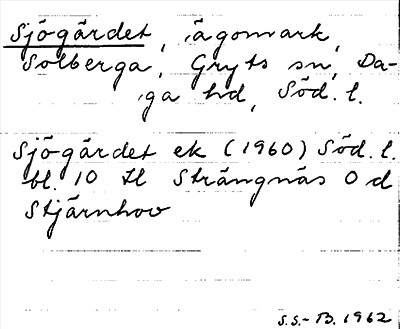 Sjögärdet, ägomark,
Solberga, Gryts sn, Da-
ga hd, Söd. l.
Sjögärdet ek (1960) Söd. l.
bl. 10 H Strängnäs O d
Stjärnhov
S.S.-B. 1962